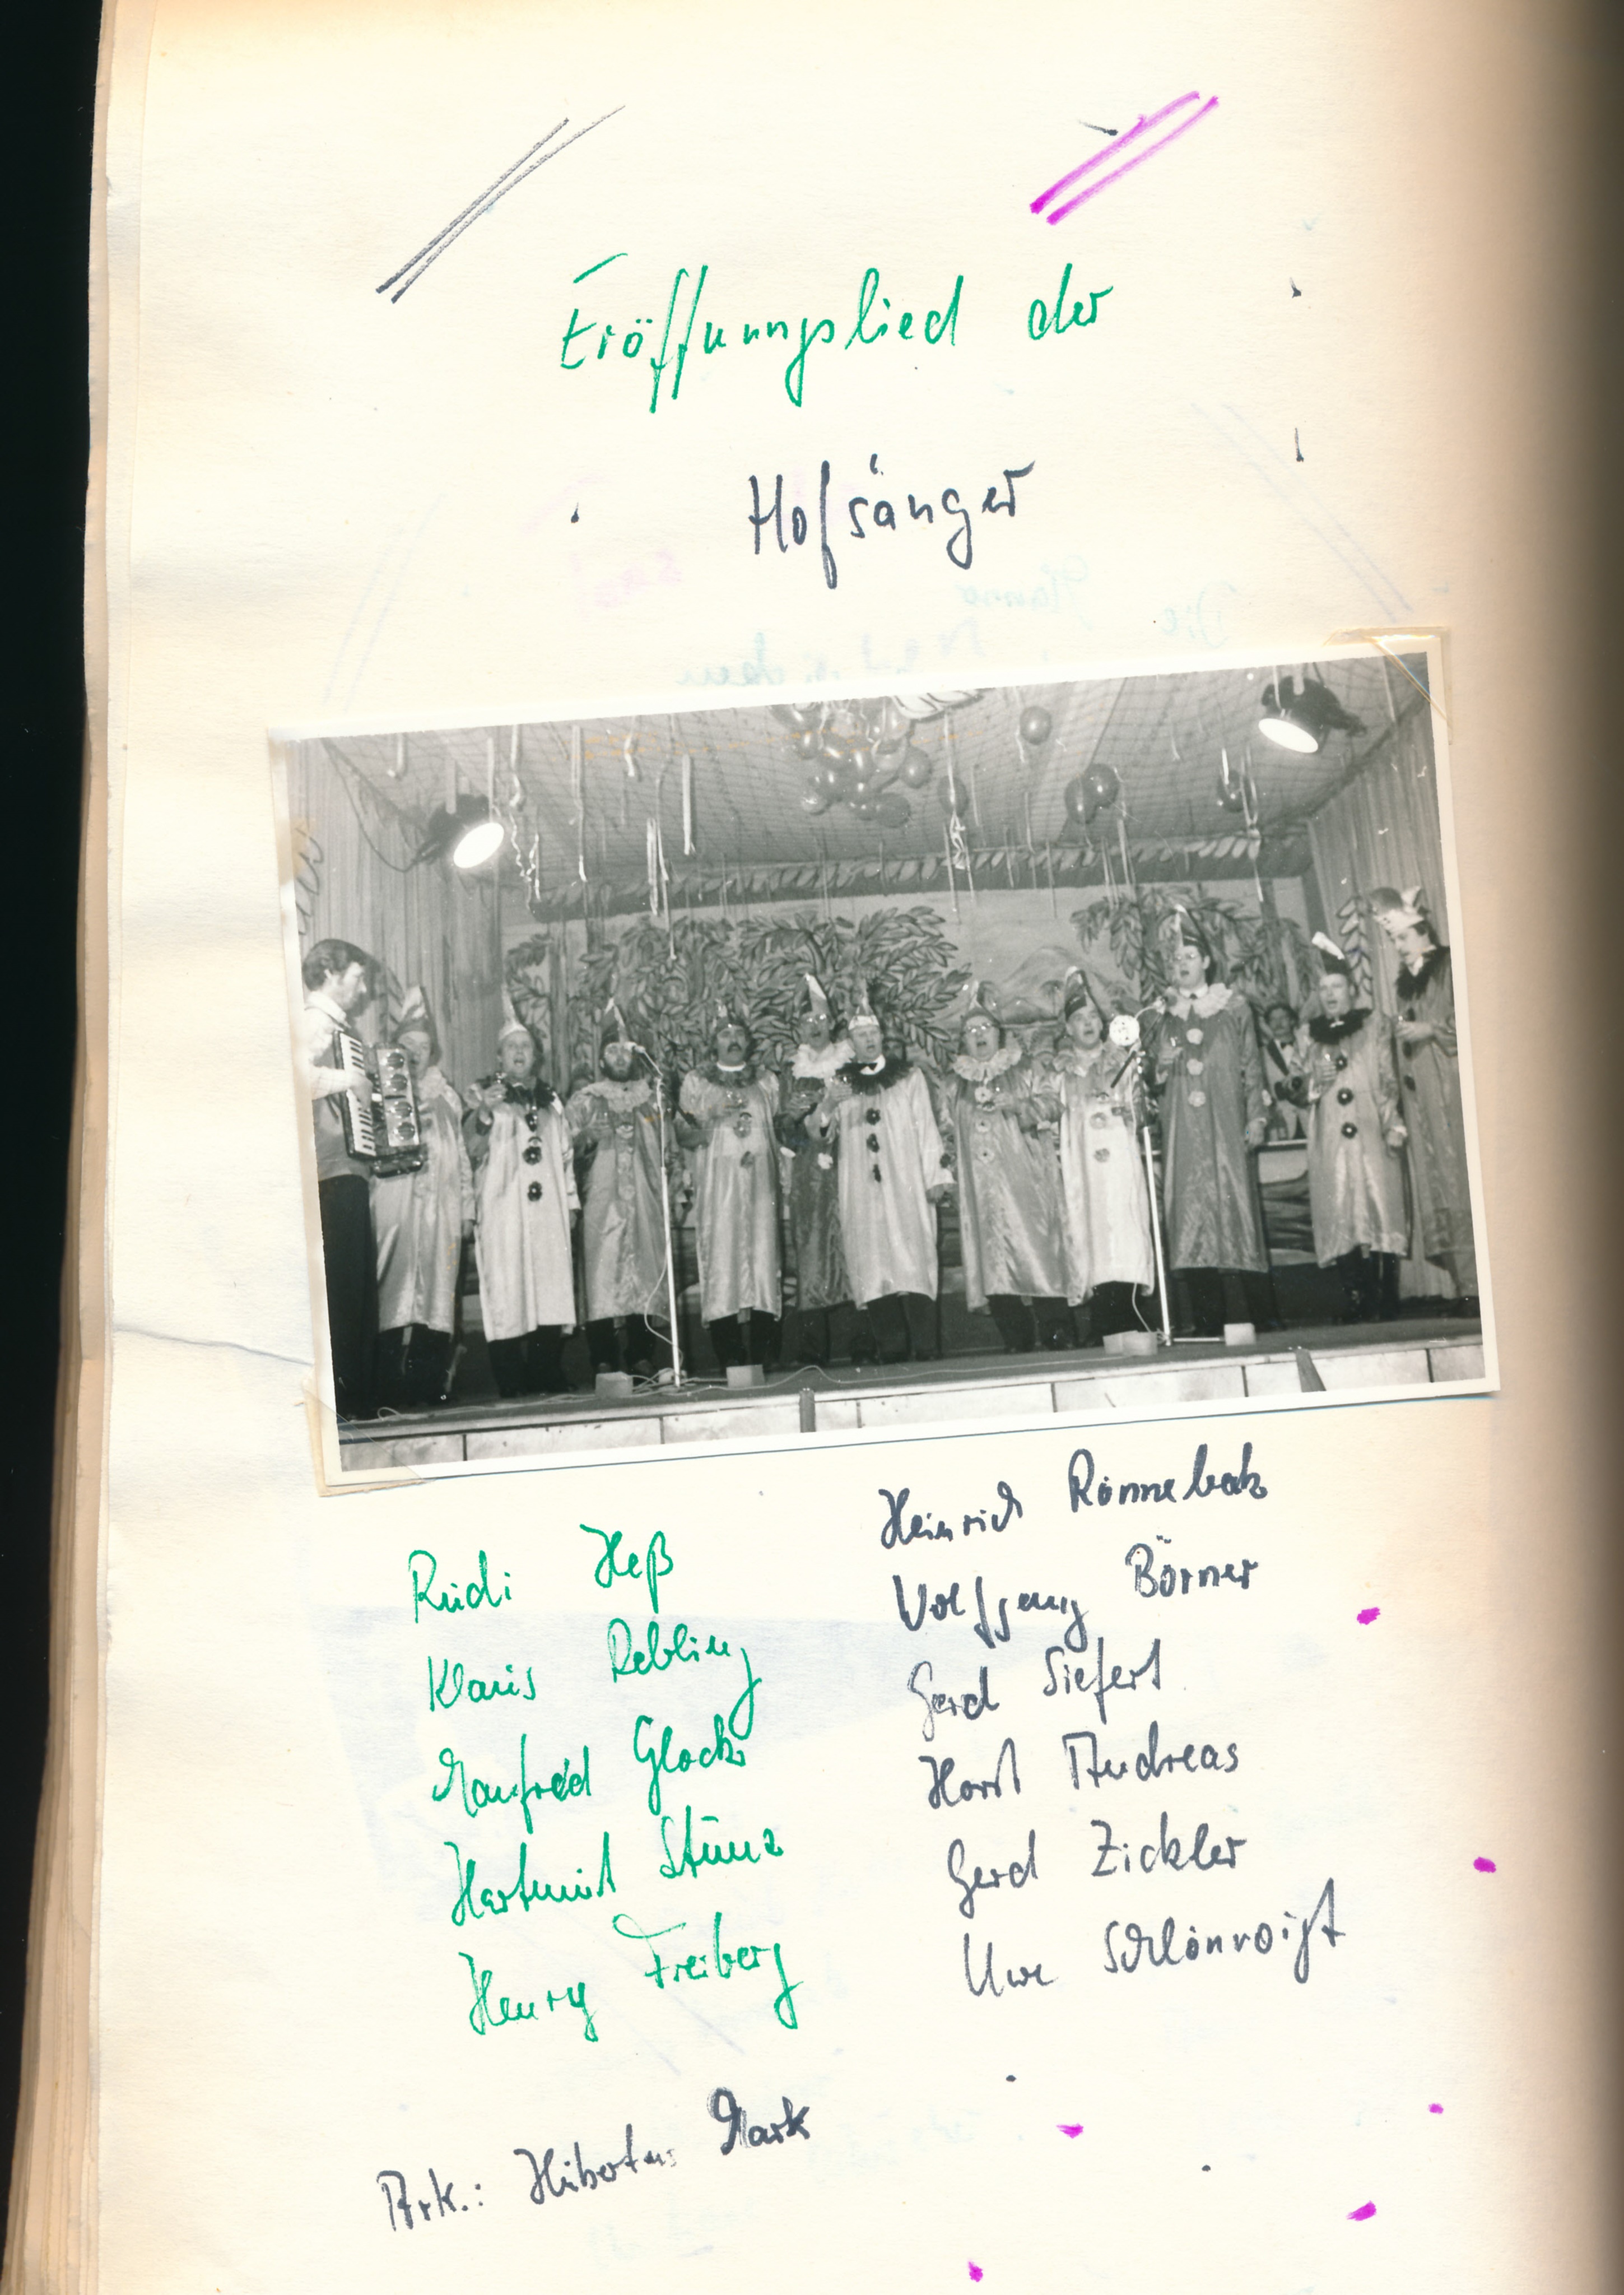 Eröffnungslied der
Hofsänger
Rudi Heß
Klaus Rebling
Manfred Glock
Hartmut Stünz
Henry Freiberg
Heinrich Rönnebeck
Wolfgang Börner
Gerd Siefert
Horst Andreas
Gerd Zickler
Uwe Schlönvoigt
Ark.: Hubertus Mark